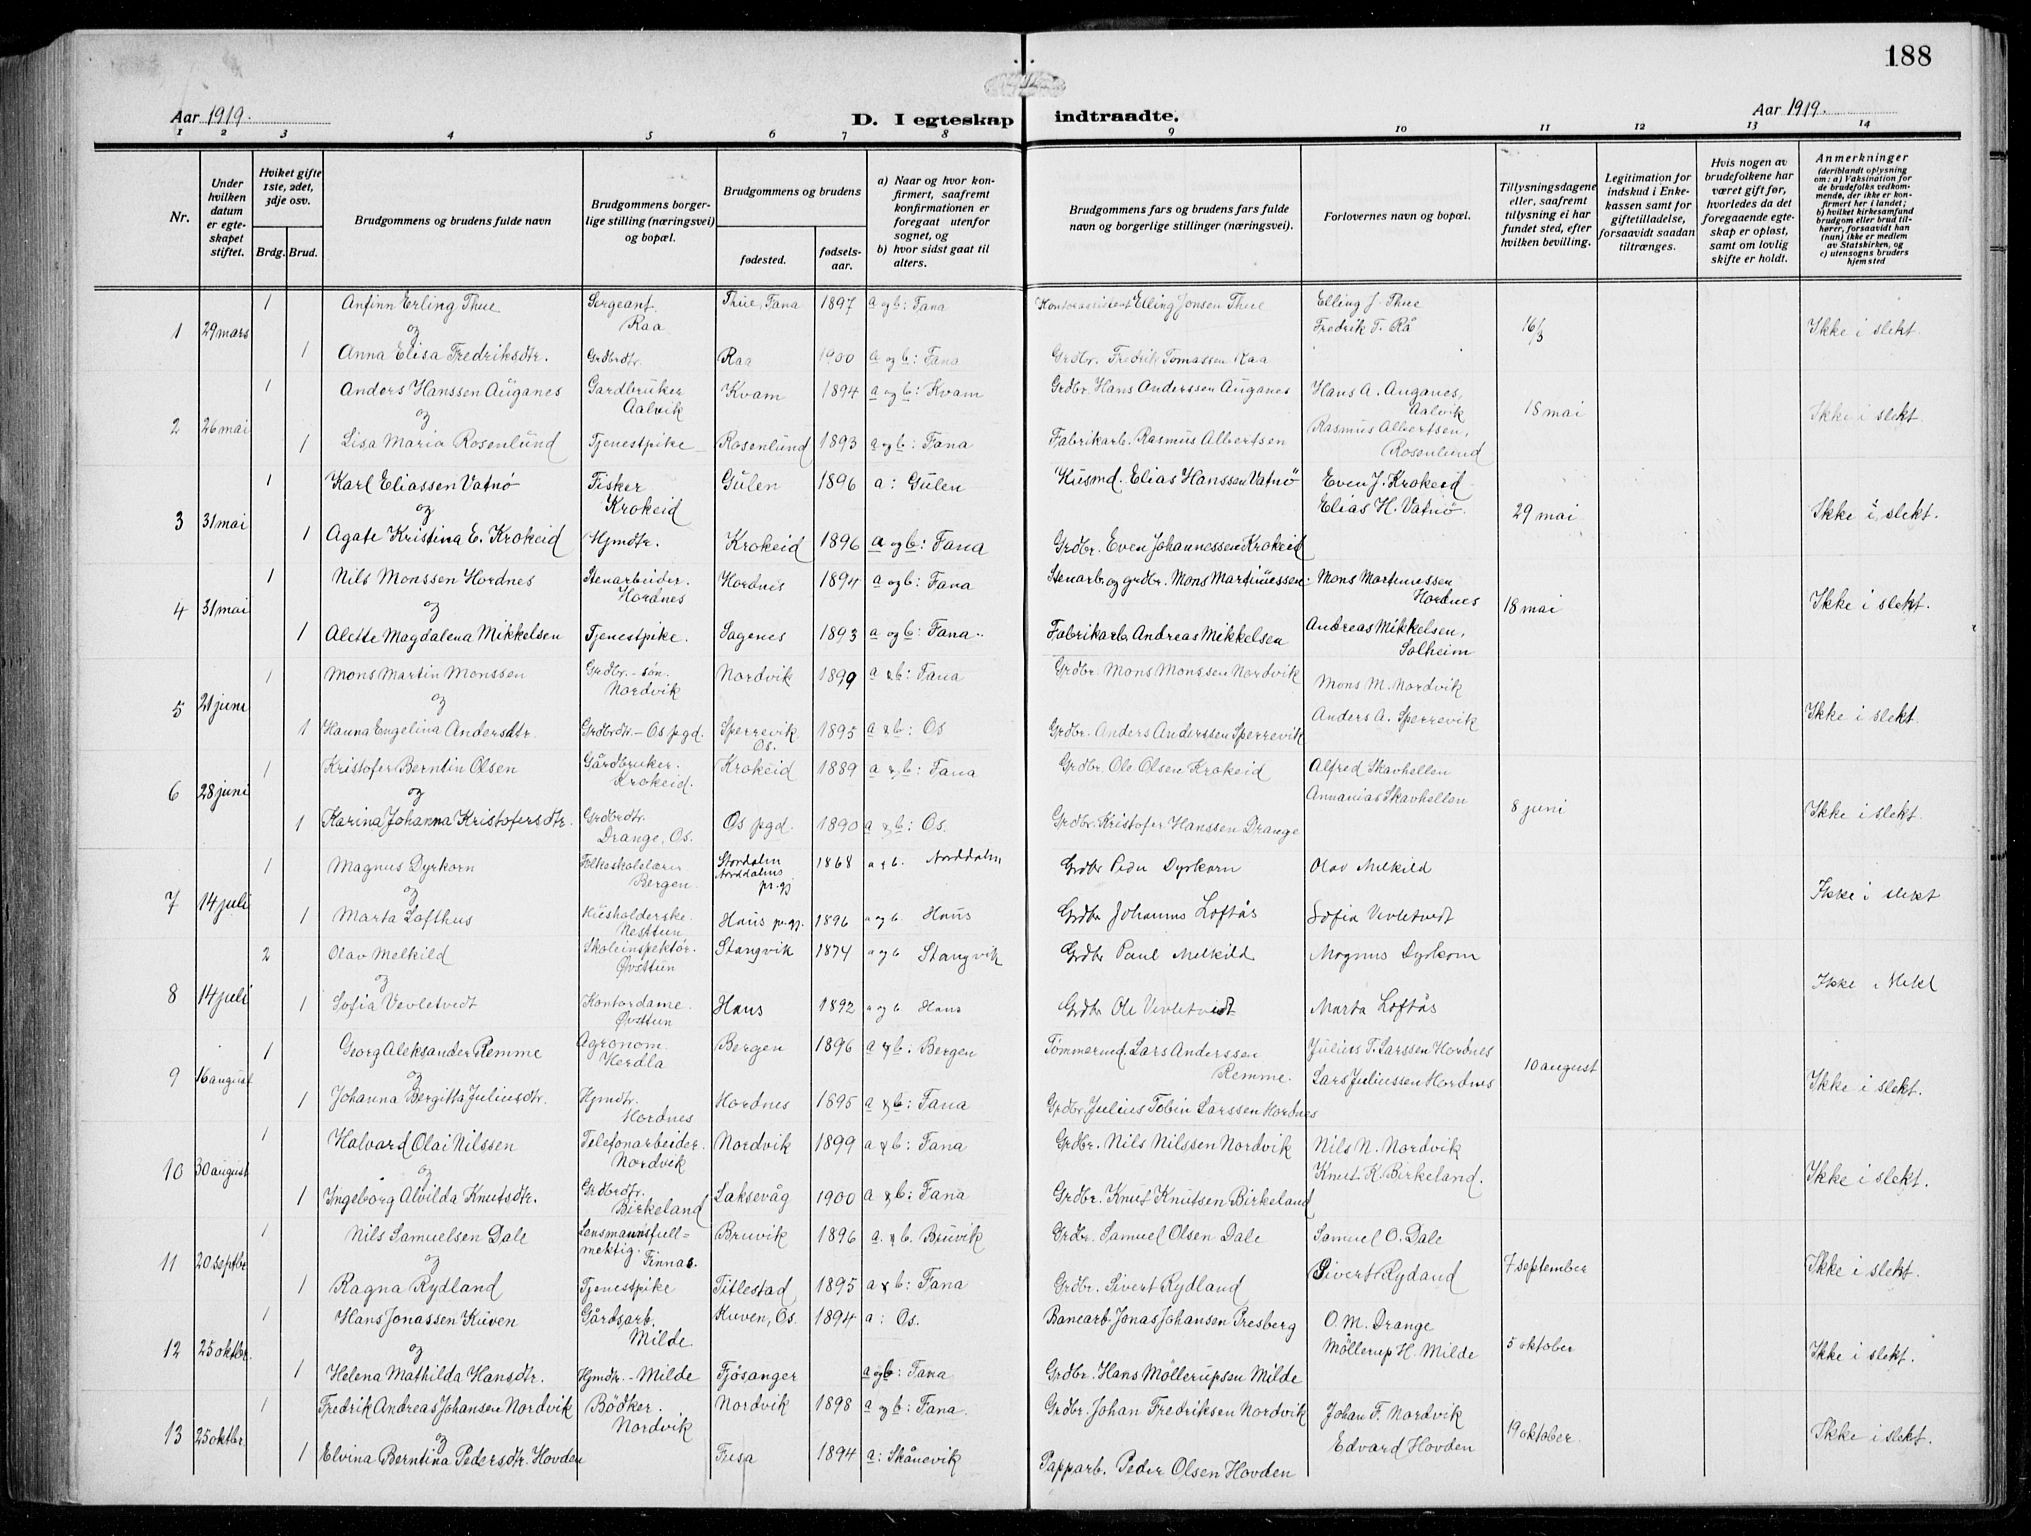 188
Aar 1919.
D. I egteskap indtraadte.
Aar 1919.
1 2 3 4 5 6 7 8 9 10 11 12 13 14
Nr.
Under hvilken datum er egteskapet stiftet.
Hvilket gifte 1ste, 2det, 3dje osv.
Brdg. Brud.
Brudgommens og brudens fulde navn
Brudgommens borgerlige stilling (næringsvei) og bopæl.
Brudgommens og brudens
fødested.
fødselsaar.
a) Naar og hvor konfirmert, saafremt konfirmationen er foregaat utenfor sognet, og
b) hvor sidst gaat til alters.
Brudgommens fars og brudens fars fulde navn og borgerlige stillinger (næringsvei).
Forlovernes navn og bopæl.
Tillysningsdagene eller, saafremt tillysning ei har fundet sted, efter hvilken bevilling.
Legitimation for indskud i Enkekassen samt for giftetilladelse, forsaavidt saadan tiltrænges.
Hvis nogen av brudefolkene har været gift før, hvorledes da det foregaaende egteskap er opløst, samt om lovlig skifte er holdt.
Anmerkninger (deriblandt oplysning om: a) Vaksination for de brudefolks vedkommende, der ikke er konfirmert her i landet; b) hvilket kirkesamfund brudgom eller brud tilhører, forsaavidt han (hun) ikke er medlem av Statskirken, og c) utensogns bruders hjemsted
1 29 mars 1 Anfinn Erling Thue Sergeant Raa Thue, Fana 1897 a og b: Fana Kontorassistent Elling Jonsen Thue Elling J. Thue Fredrik T. Rå 16/3 Ikke i slekt.
og
1 Anna Elisa Fredriksdtr. Grdbrdtr. Raa 1900 a og b: Fana Grdbr. Fredrik Tomassen Raa
2 26 mai 1 Anders Hanssen Auganes Gardbruker Aalvik Kvam 1894 a og b: Kvam Grdbr. Hans Anderssen Auganes Hans A. Auganes, Aalvik 18 mai Ikke i slekt.
og
1 Lisa Maria Rosenlund Tjenestpike Rosenlund 1893 a og b: Fana Fabrikarb. Rasmus Albertsen Rasmus Albertsen, Rosenlund
3 31 mai 1 Karl Eliassen Vatnø Fisker Krokeid Gulen 1896 a: Gulen Husmd. Elias Hanssen Vatnö Even J. Krokeid Elias H. Vatnø. 29 mai Ikke i slekt.
og
1 Agate Kristina E. Krokeid Hjmdtr. Krokeid 1896 a og b: Fana Grdbr. Even Johannessen Krokeid
4 31 mai 1 Nils Monssen Hordnes Stenarbeider. Hordnes Hordnes 1894 a og b: Fana Stenarb. og grdbr. Mons Martinussen Mons Martinussen Hordnes 18 mai Ikke i slekt.
og
1 Alette Magdalena Mikkelsen Tjenestpike. Sagenes 1893 a og b: Fana. Fabrikarb. Andreas Mikkelsen Andreas Mikkelsen, Solheim
5 21 juni 1 Mons Martin Monssen Grdbr.-søn. Nordvik Nordvik 1899 a & b: Fana Grdbr. Mons Monssen Nordvik Mons M. Nordvik Ikke i slekt.
og
1 Hanna Engelina Andersdtr. Grdbrdtr. - Os pgd. Sperrevik Os. 1895 a & b: Os Grdbr. Anders Anderssen Sperrevik Anders A. Sperrevik
6 28 juni 1 Kristofer Berntin Olsen Gårdbruker. Krokeid. Krokeid 1889 a & b: Fana Grdbr. Ole Olsen Krokeid Alfred Skavhellen Annanias Skavhellen 8 juni Ikke i slekt.
og
1 Karina Johanna Kristofersdtr. Grdbrdtr. Drange, Os. Os pgd. 1890 a & b: Os. Grdbr. Kristofer Hanssen Drange
7 14 juli 1 Magnus Dyrkorn Folkeskolelærer Bergen. Stordalen Norddalens pr.gj. 1868 a & b. Norddalen Grdbr Peder Dyrkorn Olav Melkild Ikke i slekt
og
1 Marta Lofthus Husholderske. Nesttun Haus pr.gj. 1896 a og b. Haus Grdbr Johannes Loftås Sofia Vevletvedt
8 14 juli 2 Olav Melkild Skoleinspektør. Øvsttun Stangvik 1874 a og b Stangvik Grdbr Paul Melkild Magnus Dyrkorn Ikke i slekt
og
1 Sofia Vevletvedt Kontordame. Øvsttun Haus 1892 a og b Haus Grdbr Ole Vevletvedt Marta Loftås
9 16 august 1 Georg Aleksander Remme Agronom. Herdla Bergen 1896 a & b: Bergen Tømmermd. Lars Anderssen Remme. Julius T. Larssen Hordnes Lars Juliussen Hordnes 10 august Ikke i slekt.
og
1 Johanna Bergitta Juliusdtr. Hjmdtr. Hordnes Hordnes 1895 a & b: Fana Grdbr. Julius Tobin Larssen Hordnes
10 30 august 1 Halvard Olai Nilssen Telefonarbeider. Nordvik Nordvik 1899 a & b: Fana Grdbr. Nils Nilssen Nordvik Nils N. Nordvik Knut K. Birkeland. Ikke i slekt.
og
1 Ingeborg Alvilda Knutsdtr. Grdbrdtr. Birkeland Laksevåg 1900 a & b: Fana Grdbr. Knut Knutsen Birkeland
11 20 septbr 1 Nils Samuelsen Dale Lensmannsfullmektig. Finnas. Bruvik 1896 a. & b. Bruvik Grdbr. Samuel Olsen Dale Samuel O. Dale 7 september Ikke i slekt.
og
1 Ragna Rydland Tjenestpike Titlestad 1895 a & b: Fana Grdbr. Sivert Rydland Sivert Rydand
12 25 oktbr. 1 Hans Jonassen Kuven Gårdsarb. Milde Kuven, Os. 1894 a: Os. Banearb. Jonas Johansen Presberg O. M. Drange Möllerup H. Milde 5 oktober Ikke i slekt.
og
1 Helena Mathilda Hansdtr. Hjmdtr. - Milde Fjösanger a og b: Fana Grdbr. Hans Möllerupsen Milde
13 25 oktbr. 1 Fredrik Andreas Johansen Nordvik Bödker. Nordvik Nordvik 1898 a og b: Fana. Grdbr. Johan Fredriksen Nordvik Johan F. Nordvik Edvard Hovden 19 oktober. Ikke i slekt.
og
1 Elvina Berntina Pedersdtr. Hovden Fusa 1894 a: Skånevik Papparb. Peder Olsen Hovden